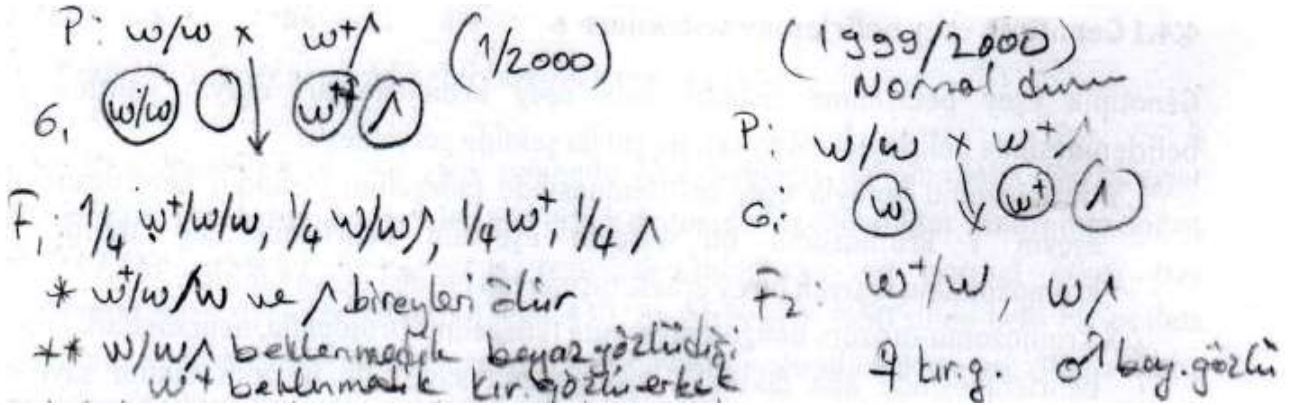 P: w/w x w+/Λ (1/2000)
G, (w/w) ( ) (w+) (Λ)
F1: 1/4 w+/w/w, 1/4 w/w/Λ, 1/4 w+, 1/4 Λ
* w+/w/w ve Λ bireyleri ölür
** w/wΛ beklenmedik beyaz gözlü dişi
w+ beklenmedik kır. gözlü erkek
(1999/2000)
Normal durum
P: w/w x w+Λ
G: (w) (w+) (Λ)
F2: w+/w, wΛ
♀ kır.g. ♂ bey.gözlü